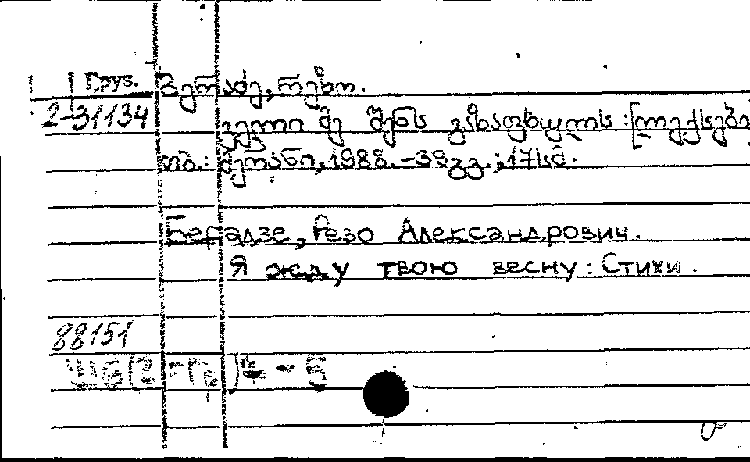 Груз. ბერაძე, რეზო.
2-31134 ველი მე შენს გაზაფხულს : [ლექსები
თბ.: მერანი, 1988. -38გვ.; 17სმ.
Берадзе, Резо Александрович.
Я жду твою весну : Стихи.
88151
Ш6(2=Гр)4-5